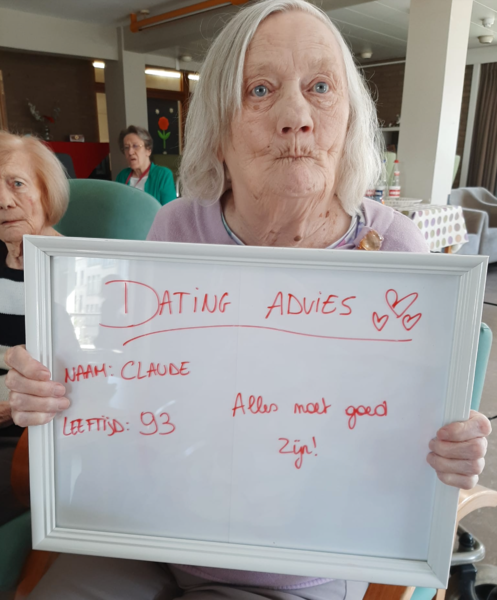 DATING ADVIES
NAAM: CLAUDE
LEEFTIJD: 93
Alles moet goed
zijn!